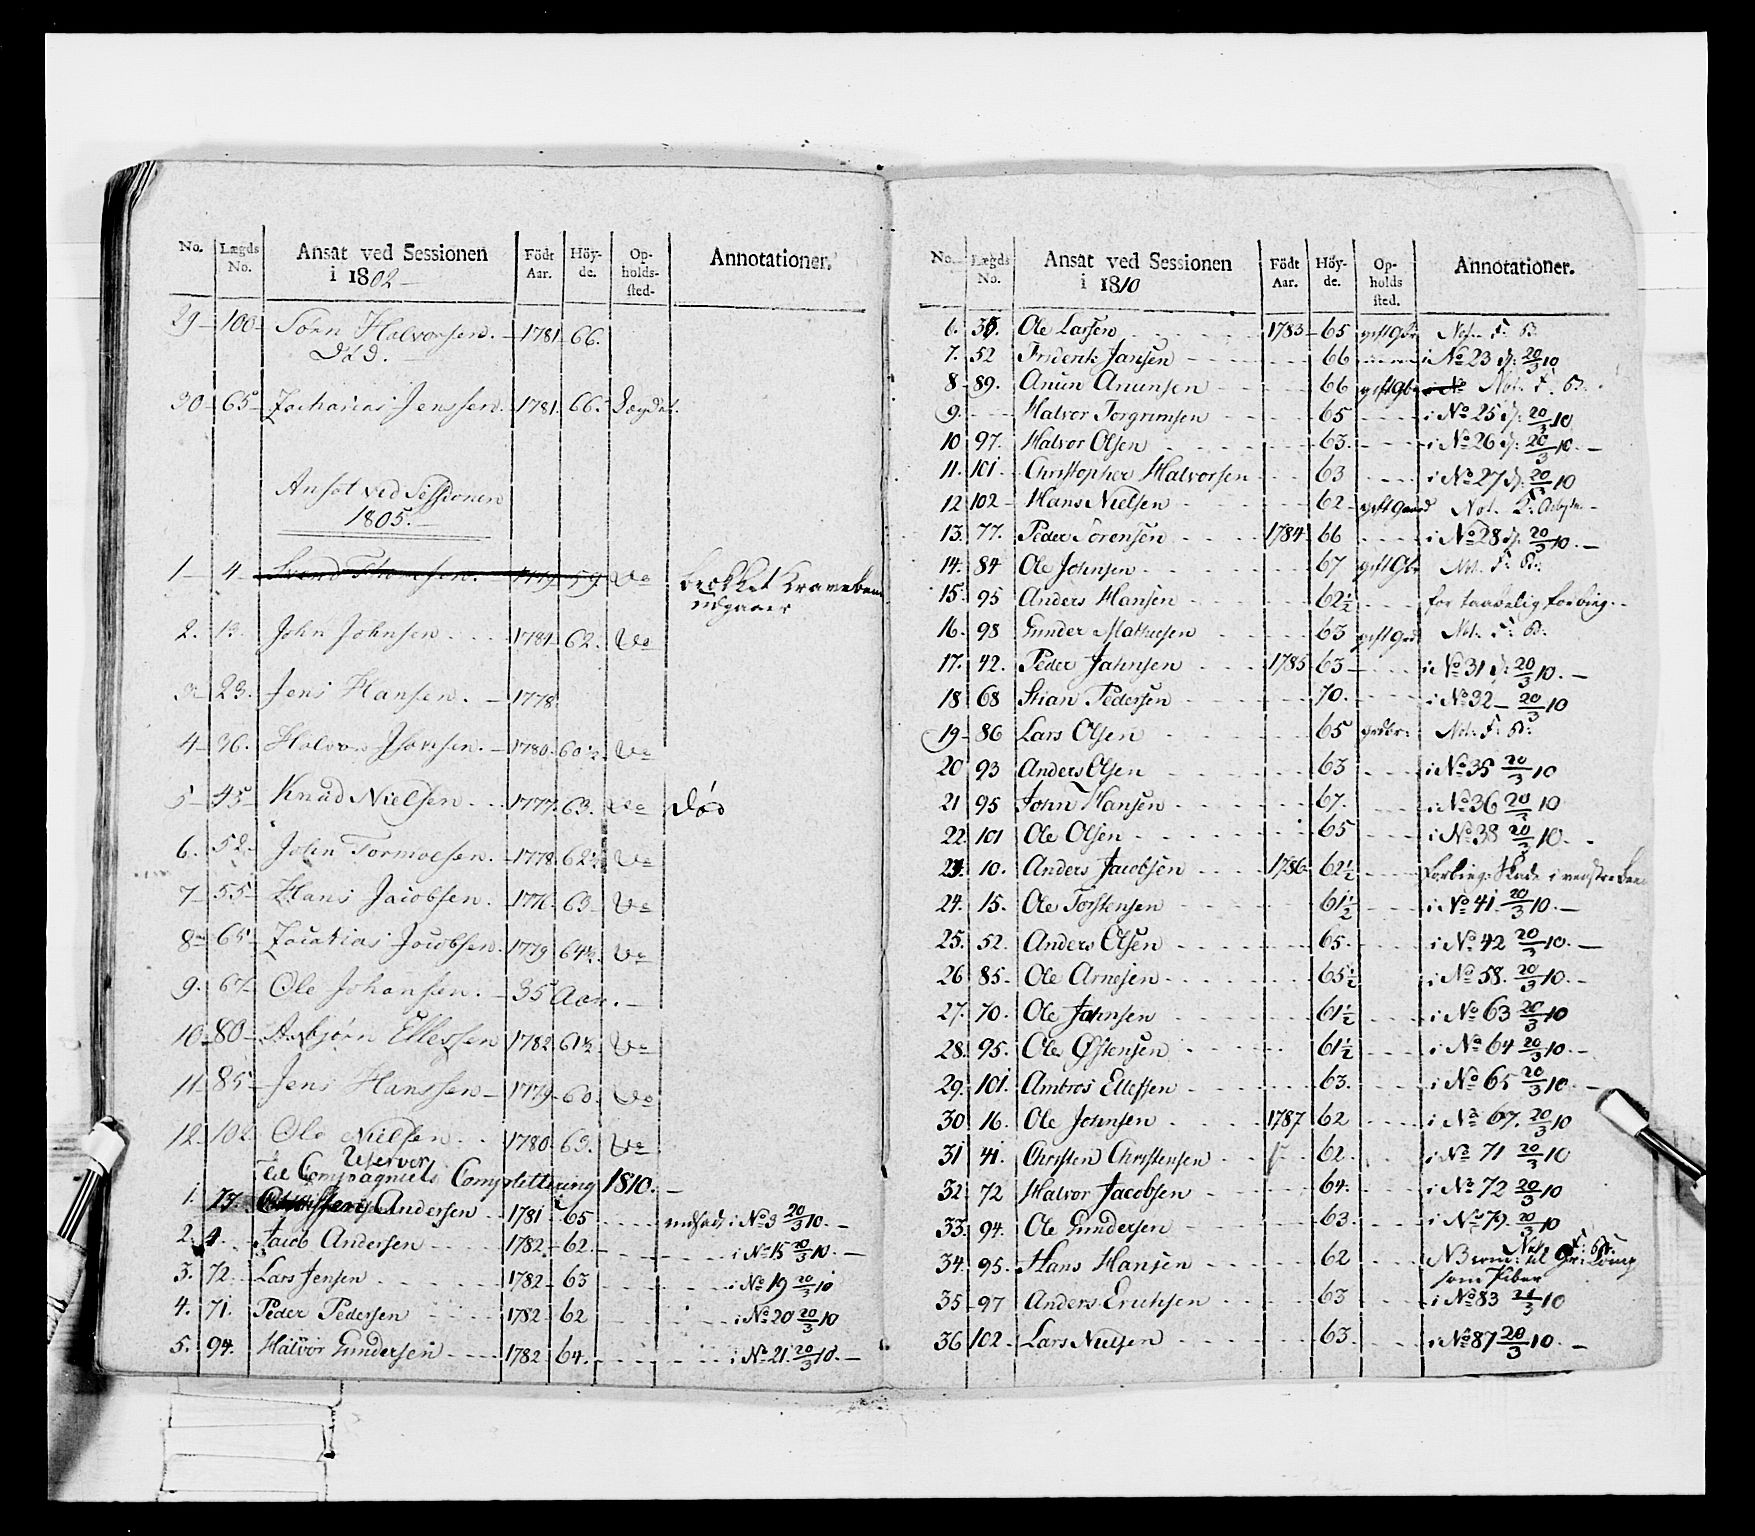 No. Lægds No. Ansat ved Sessionen i 1802 Födt Aar. Höy-de. Op-holds-sted. Annotationer.
29 100 Sörn Halvorsen. 1781 66.
Död.
30 65 Zacharias Jenssen. 1781 66.
Ansat ved Sessionen
1805.
1 4 59 Do brökket
udgaaer
2. 13. John Johnsen 1781 62. Do
3 23. Jens Hansen. 1778
4 36. Halvor 1780 60½ Do
5 45 Knud Nielsen 1777 63. Do Död
6. 52. John Tormoesen. 1778 62½ Do
7 55 Hans Jacobsen. 1776 63 Do
8 65 Zacarias Jacobsen. 1779 64½ Do
9. 67 Ole Johansen. 35 Aar.
10 80 Asbjörn Ellessen 1782 61½ Do
11 85 Jens Hanssen 1779 60. Do
12 102 Ole Nielsen 1780 63. Do
Reserver
Til Compagniets Complettering 1810.
1. 73. Andersen 1781 65 indsat i No 3 20/3 10.
2. 4. Jacob Andersen 1782 62 i No 15 20/3 10.
3. 72. Lars Jensen 1782 63 i No 19 20/3 10
4. 71. Peder Pedersen 1782 62 i No 20 20/3 10
5. 94. Halvor Gundersen 1782 64. i No 21. 20/3 10.
No. Lægds No. Ansat ved Sessionen i 1810 Födt Aar. Höy-de. Op-holds sted. Annotationer.
6. 35. Ole Larsen 1783 65 gift Gbr. Not. F. B.
7. 52 Friderik Jansen 66 i No 23 d: 20/3 10
8 89. Anun Anunsen 66 gift Gbr Not. F. B.
9. Halvor Torgrimsen 65 i No 25 d: 20/3 10
10 97. Halvor Olsen 63. i No 26 d: 20/3 10.
11. 101 Christopher Halvorsen 63 i No 27 d: 20/3 10
12 102 Hans Nielsen 62 gift Not.
13. 77. Peder Sörensen 1784 66 i No 28 d: 20/3 10.
14. 84 Ole Johnsen 67 gift Gbr Not. F. B.
15. 95 Anders Hansen 62½ for
16. 98 Gunder Mathiesen 63 gift Not. F. B.
17. 42. Peder Jahnsen 1785 63 i No 31 d: 20/3 10.
18. 68 Stian Pedersen 70. i No 32 20/3 10
19 86 Lars Olsen 65 Not: F: B:
20 93 Anders Olsen 63 i No 35 20/3 10
21 95 John Hansen 67. i No 36 20/3 10
22. 101 Ole Olsen 65 i No 38 20/3 10.
23. 10. Anders Jacobsen 1786 62½ Skade i venstre
24. 15. Ole Torstensen 61½ i No 41 20/3 10.
25. 52. Anders Olsen 65. i No 42 20/3 10.
26 85. Ole Arnesen 65½ i No 58. 20/3 10.
27. 70. Ole Jahnsen 61½ i No 63 20/3 10
28. 95. Ole Östensen 61½ i No 64 20/3 10.
29. 101. Ambros Ellessen 63. i No 65 20/3 10.
30 16. Ole Johnsen 1787 62 i No 67. 20/3 10
31 41. Christen Christensen 62. i No 71 20/3 10
32. 72 Halvor Jacobsen 64. i No 72 20/3 10
33. 94. Ole Gundersen 63. i No 79. 20/3 10
34. 95. Hans Hansen 62 Not. F: B:
som Piber
35 97 Anders Erichsen 63 i No 83 21/3 10
36 102 Lars Nielsen 63. i No 87 20/3 10.